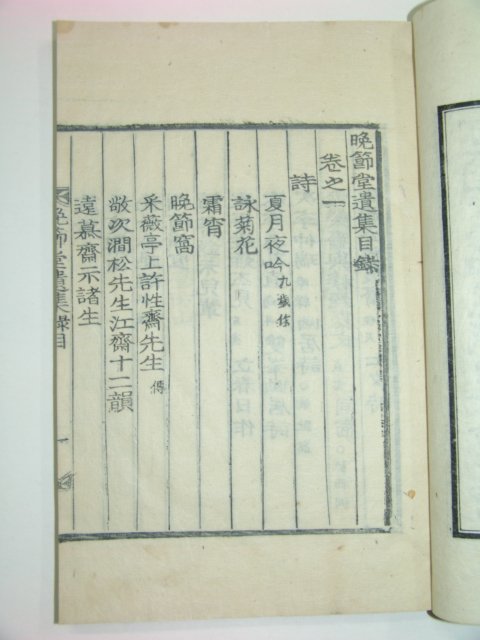 晚節堂遺集目錄
卷之一
詩
夏月夜吟九歲作
詠菊花
霜宵
晚節窩
采薇亭上許性齋先生傳
敬次澗松先生江齋十二韻
遠慕齋示諸生
晚節堂遺集錄目
一